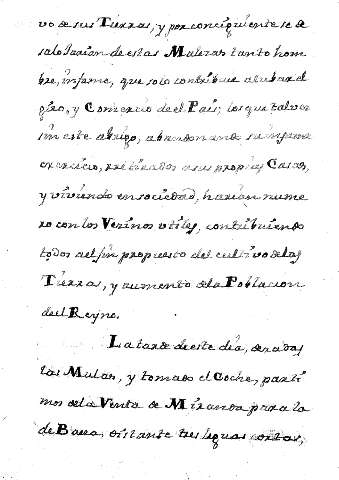 vo de sus Tierras, y por conciguiente se de
salotarian de estas Malezas tanto hom
bre, infame, que solo contribue a turbar el
giro, y Comercio de el Pais; los que talvez
sin este abrigo, abandonando su infame
exercicio, retirados a sus propias Casas,
y viviendo en sociedad, harian nume
ro con los Vecinos utiles, contribuiendo
todos a el fin propuesto del cultivo de las
Tierras, y aumento de la Poblacion
de el Reyno.
La tarde de este dia, aseradas
las Mulas, y tomado el Coche, parti
mos de la Venta de Miranda para la
de Baeza, distante tres leguas cortas,